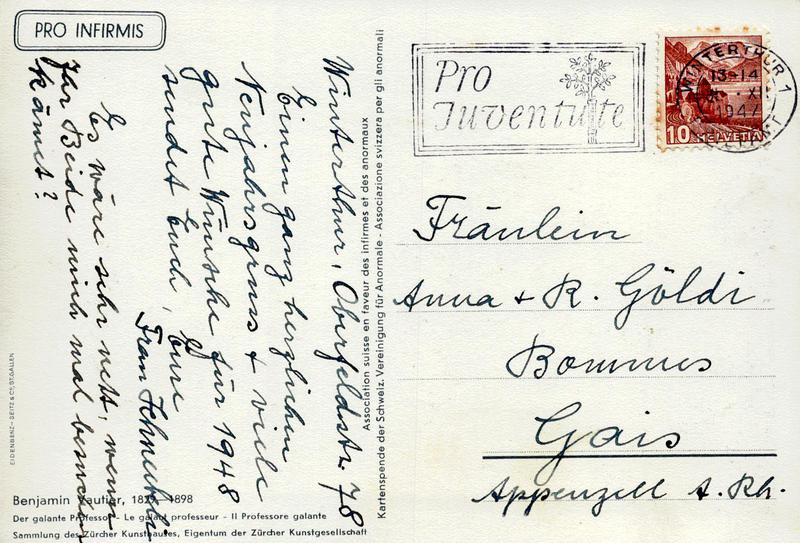 PRO INFIRMIS
Winterthur, Oberfeldstr. 78
Einen ganz herzlichen
Neujahrsgruss & viele
gute Wünsche für 1948
sendet Euch, Eure
Frau
Es wäre sehr nett, wenn
Ihr Beide mich mal besuchen
kämet?
EIDENBENZ-SEITZ & CO, ST. GALLEN
Benjamin Vautier, 1829–1898
Der galante Professor - Le galant professeur - Il Professore galante
Sammlung des Zürcher Kunsthauses, Eigentum der Zürcher Kunstgesellschaft
Association suisse en faveur des infirmes et des anormaux
Kartenspende der Schweiz. Vereinigung für Anormale - Associazione svizzera per gli anormali
Pro
Juventute
WINTERTHUR 1
13-14
XII
1947
10 HELVETIA
Fräulein
Anna & R. Göldi
Bommes
Gais
Appenzell A. Rh.